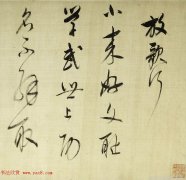 放歌行
小來好文恥
學武世上功
名不解取